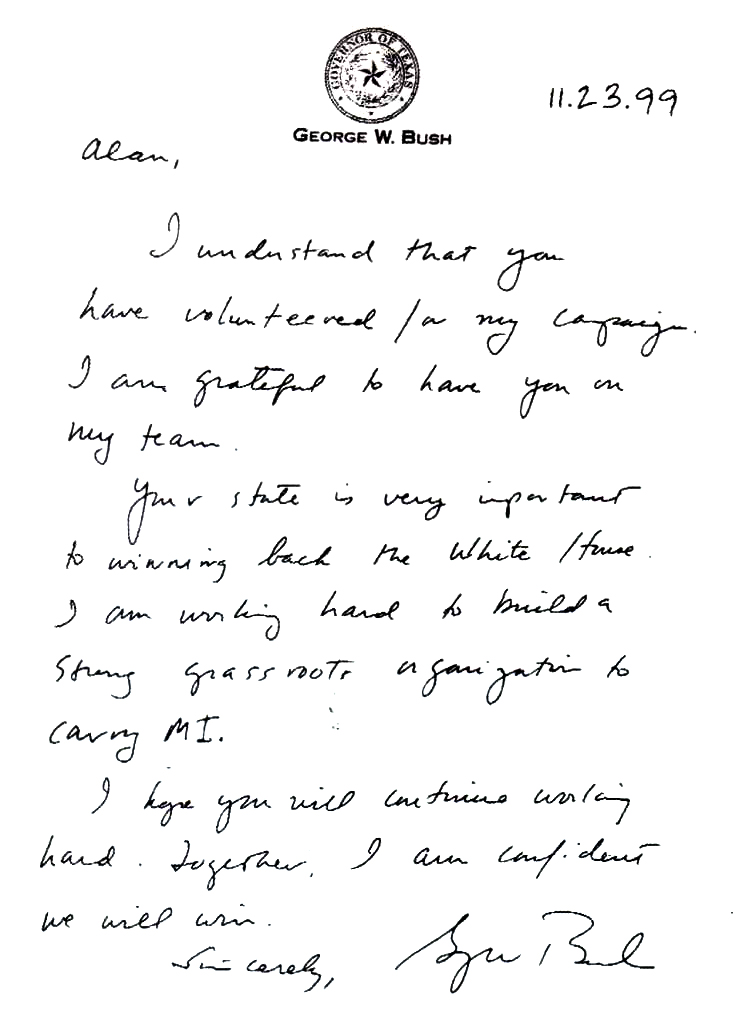 GOVERNOR OF TEXAS
GEORGE W. BUSH
11.23.99
Alan,
I understand that you
have volunteered for my campaign.
I am grateful to have you on
my team.
Your state is very important
to winning back the White House.
I am working hard to build a
strong grassroots organization to
carry MI.
I hope you will continue working
hard. Together, I am confident
we will win.
Sincerely, George Bush